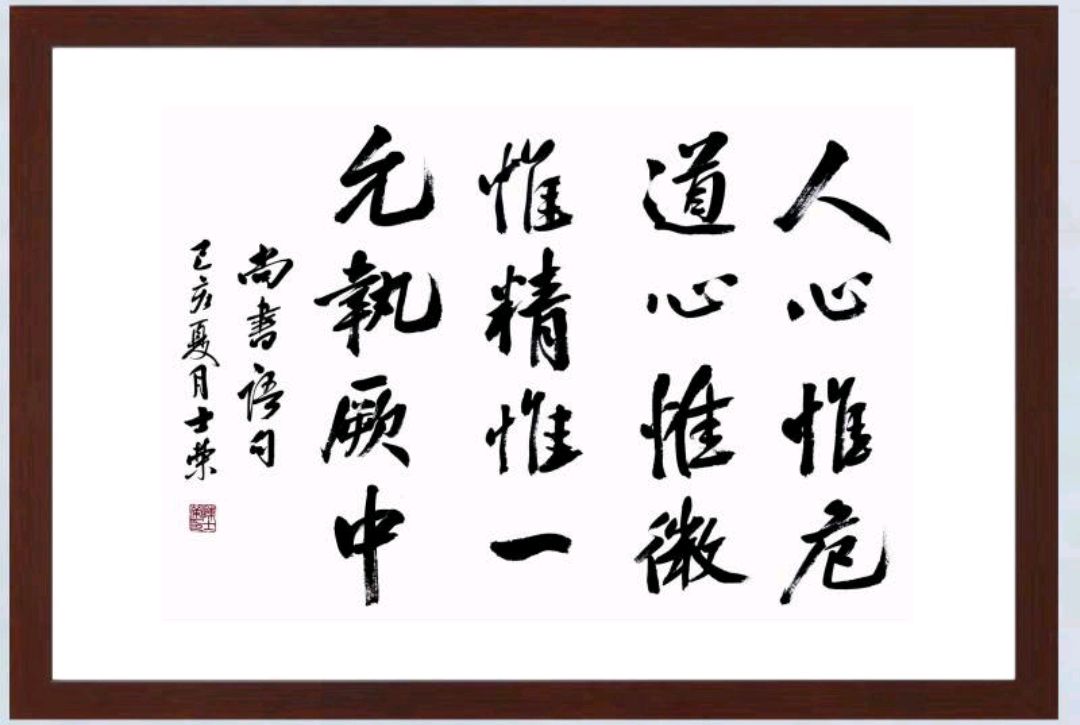 人心惟危
道心惟微
惟精惟一
允執厥中
尚書语句
己亥夏月士荣